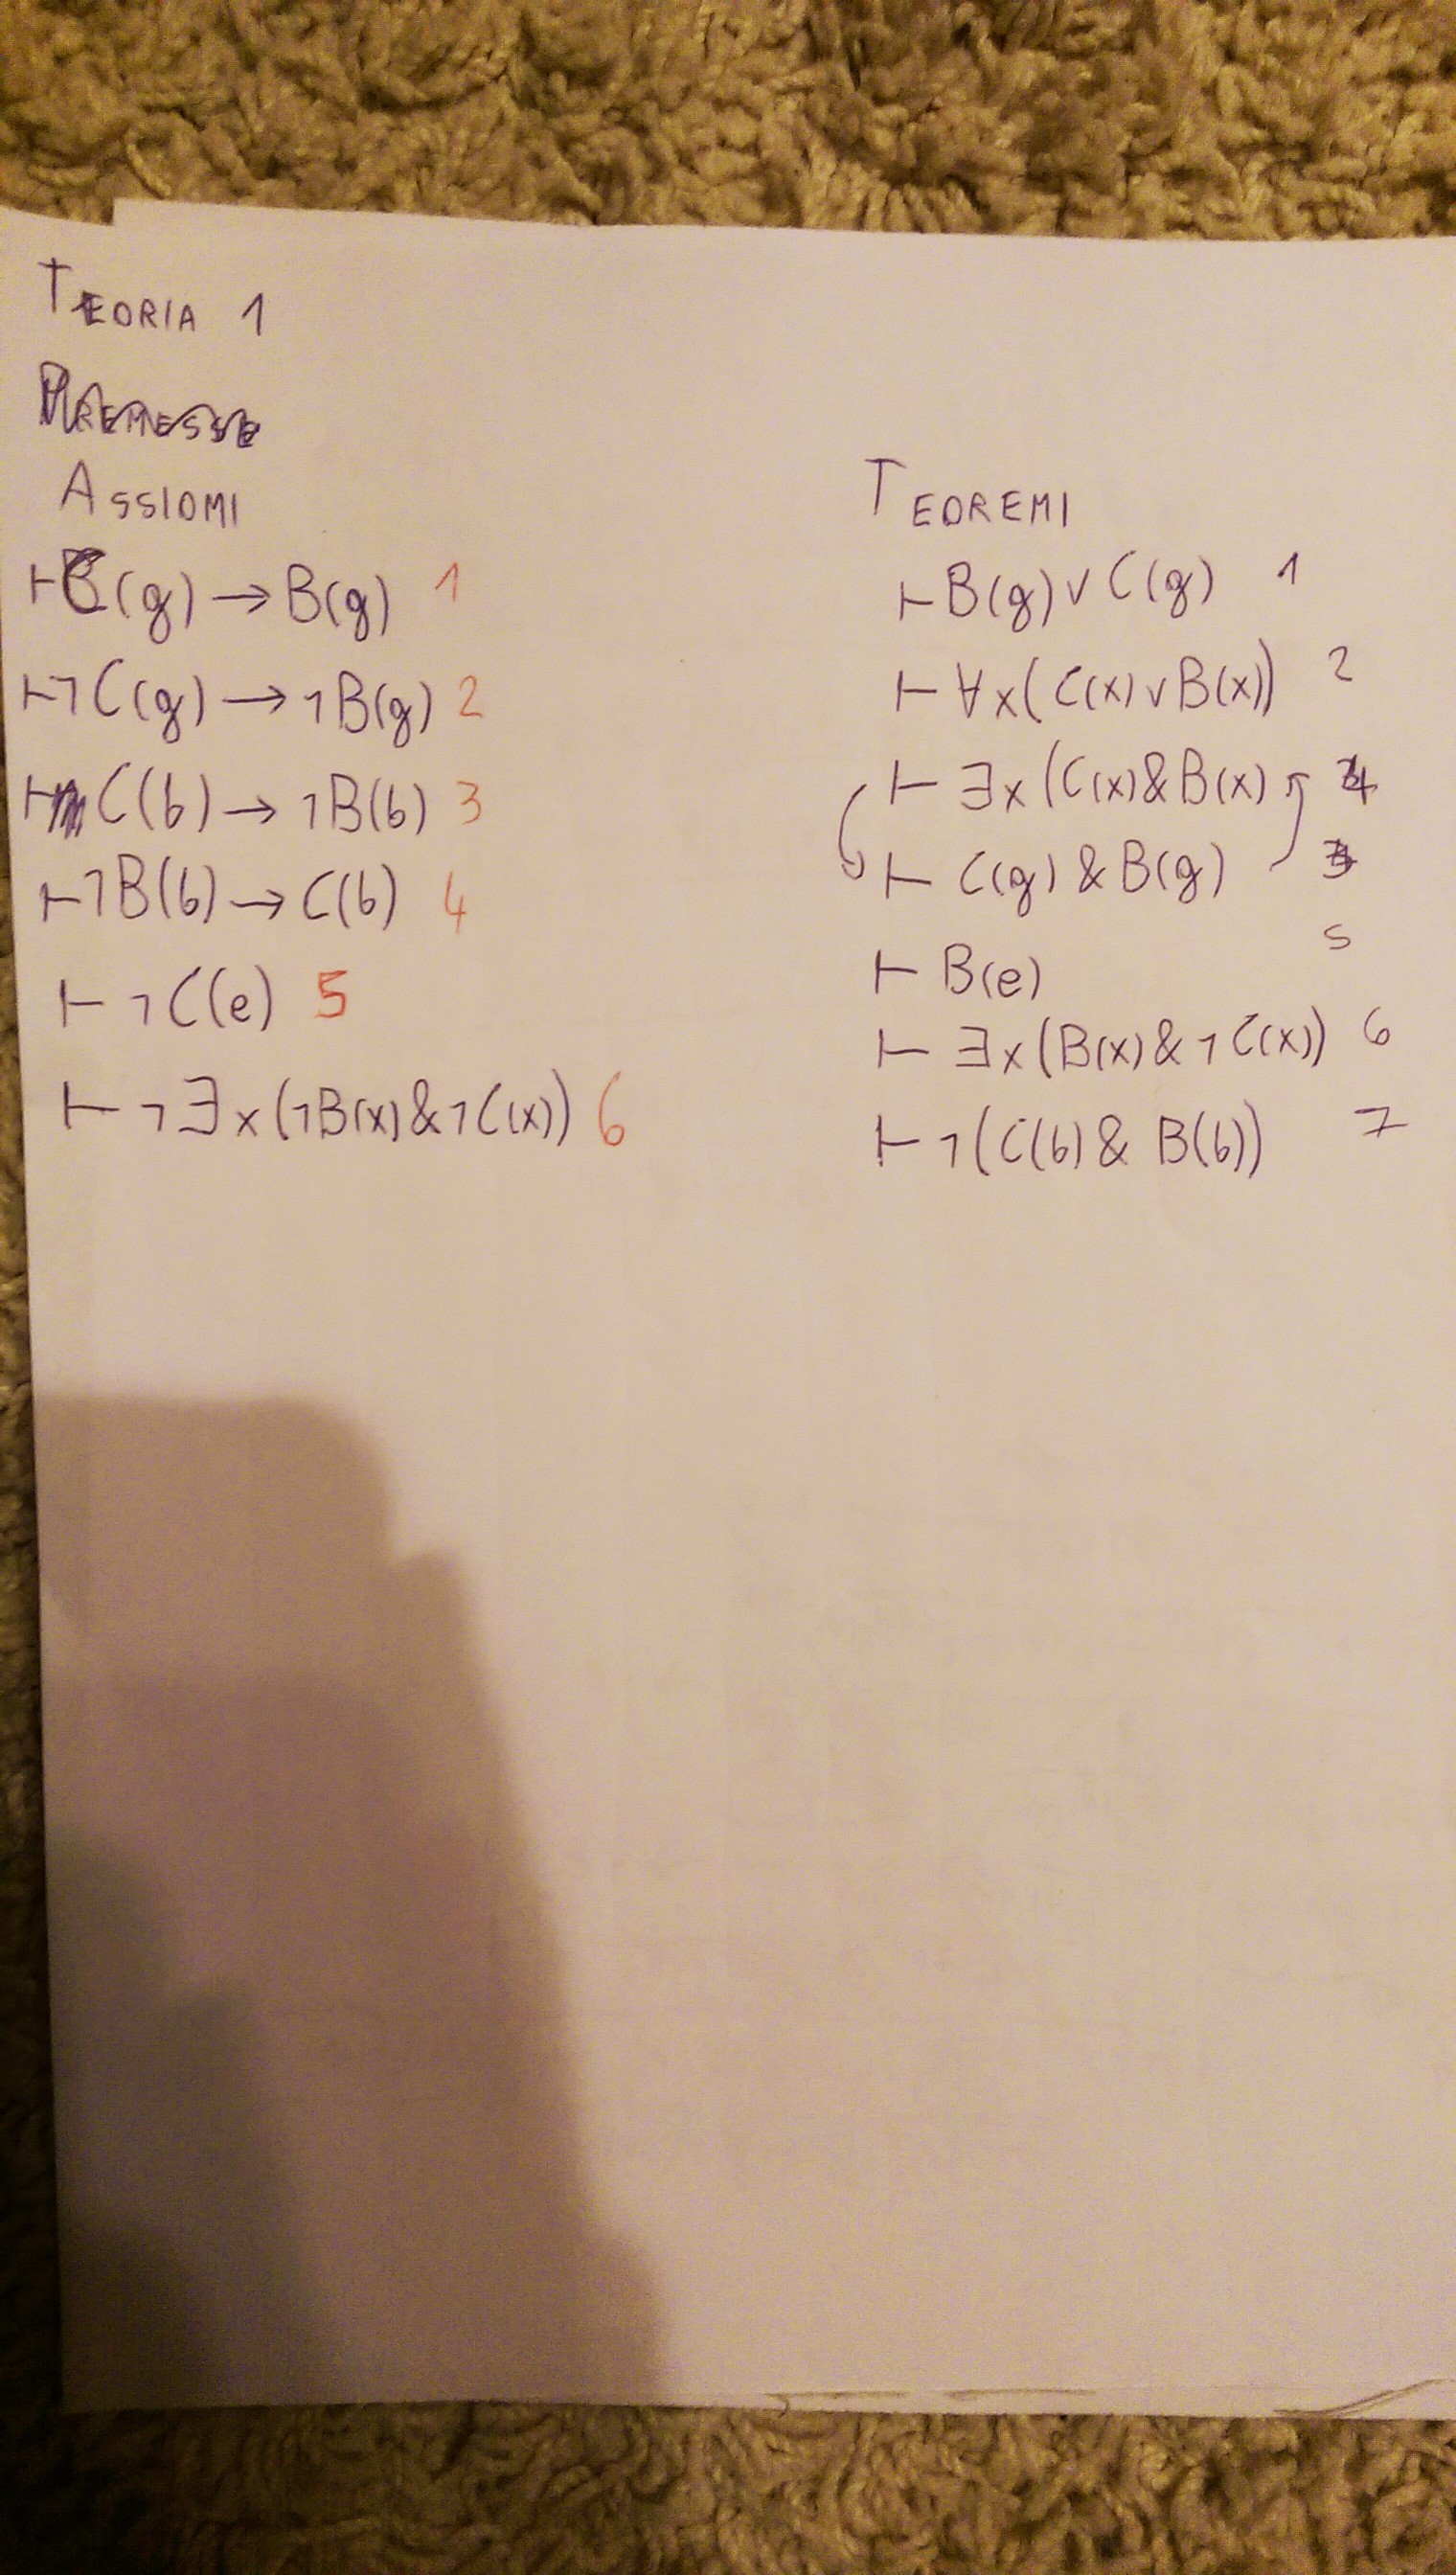 TEORIA 1
PREMESSE
ASSIOMI
⊢C(g) → B(g) 1
⊢¬C(g) → ¬B(g) 2
⊢C(b) → ¬B(b) 3
⊢¬B(b) → C(b) 4
⊢¬C(e) 5
⊢¬∃x(¬B(x)&¬C(x)) 6
TEOREMI
⊢B(g)∨C(g) 1
⊢∀x(C(x)∨B(x)) 2
⊢∃x(C(x)&B(x) 4
⊢C(g)&B(g) 3
⊢B(e) 5
⊢∃x(B(x)&¬C(x)) 6
⊢¬(C(b)&B(b)) 7